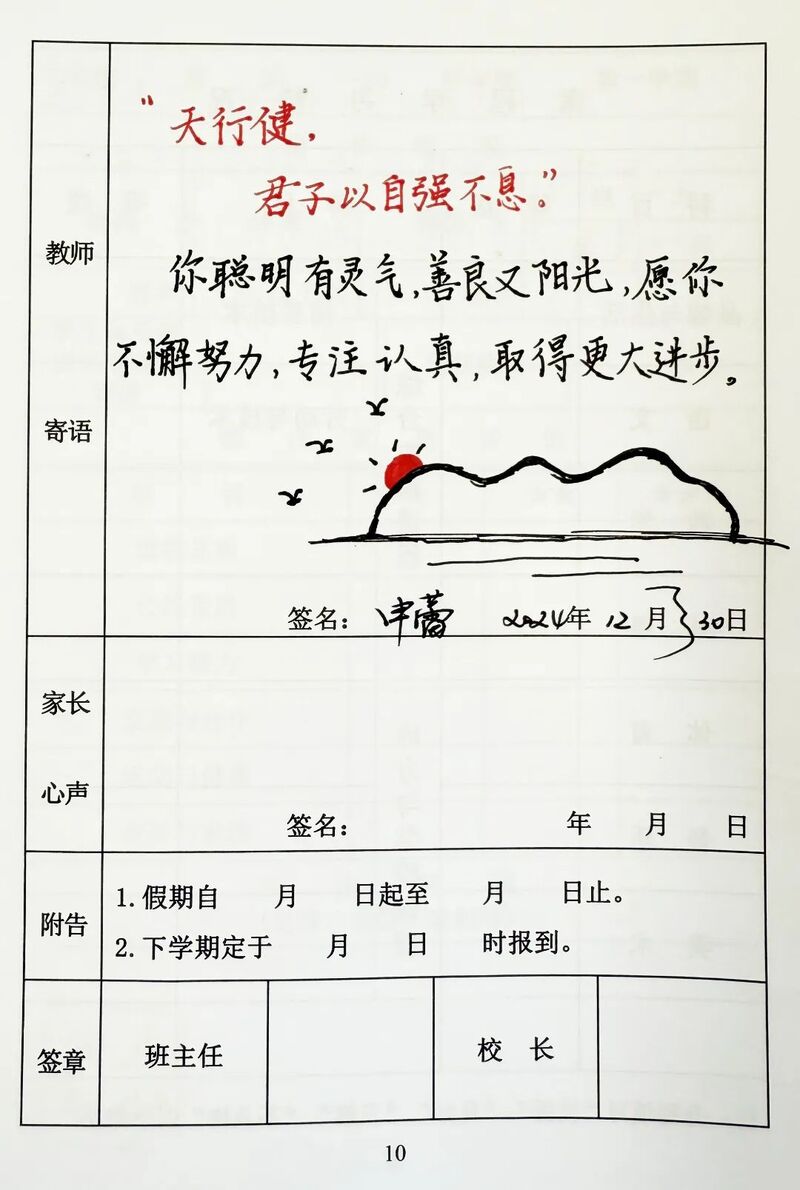 “天行健,
君子以自强不息。”
教师
寄语
你聪明有灵气,善良又阳光,愿你
不懈努力,专注认真,取得更大进步。
签名: 申蕾 2024年 12 月 30日
家长
心声
签名: 年 月 日
附告
1.假期自 月 日起至 月 日止。
2.下学期定于 月 日 时报到。
签章 班主任 校 长
10